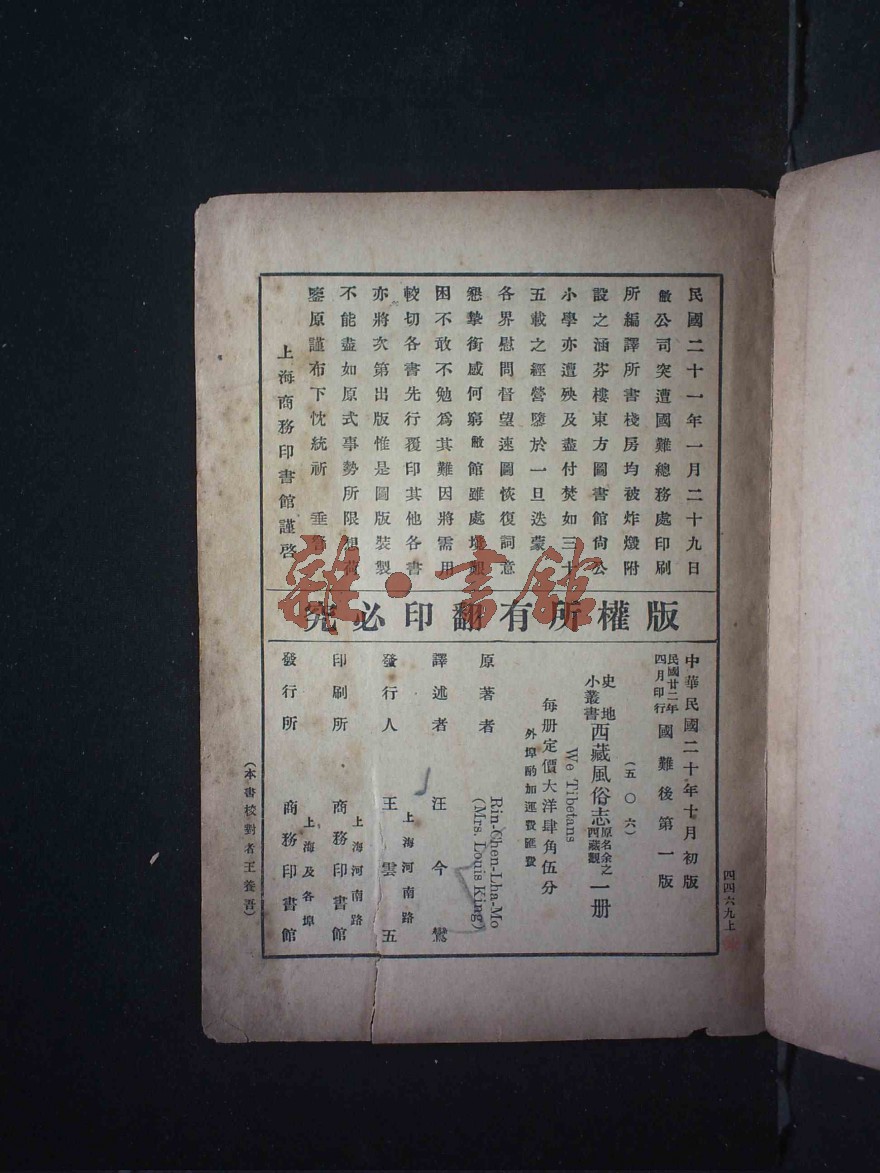 民國二十一年一月二十九日
敝公司突遭國難總務處印刷
所編譯所書棧房均被炸燬附
設之涵芬樓東方圖書館尙公
小學亦遭殃及盡付焚如三十
五載之經營隳於一旦迭蒙
各界慰問督望速圖恢復詞意
懇摯銜感何窮敝館雖處境艱
困不敢不勉爲其難因將需用
較切各書先行覆印其他各書
亦將次第出版惟是圖版裝製
不能盡如原式事勢所限想荷
鑒原謹布下忱統祈 垂詧
上海商務印書館謹啓
版權所有翻印必究
雜·書館
四四六九上
中華民國二十年十月初版
民國廿二年四月印行 國難後第一版
(五〇六)
史地小叢書 西藏風俗志 原名余之西藏觀 一册
We Tibetans
每册定價大洋肆角伍分
外埠酌加運費匯費
原著者 Rin-Chen-Lha-Mo
(Mrs. Louis King)
譯述者 汪今鸞
發行人 王雲五
上海河南路
印刷所 商務印書館
上海河南路
發行所 商務印書館
上海及各埠
(本書校對者王養吾)